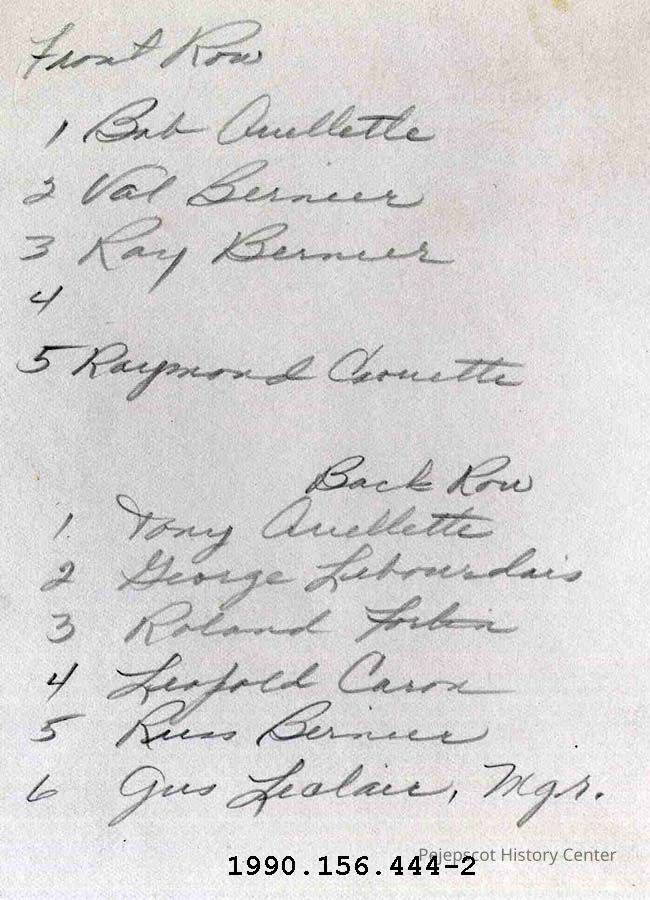 Front Row
1 Bob Ouellette
2 Val Bernier
3 Ray Bernier
4
5 Raymond Chouette
Back Row
1. Tony Ouellette
2 George Lebourdais
3 Roland Fortin
4 Leopold Caron
5 Russ Bernier
6 Gus Leclair, Mgr.
Pejepscot History Center
1990.156.444-2